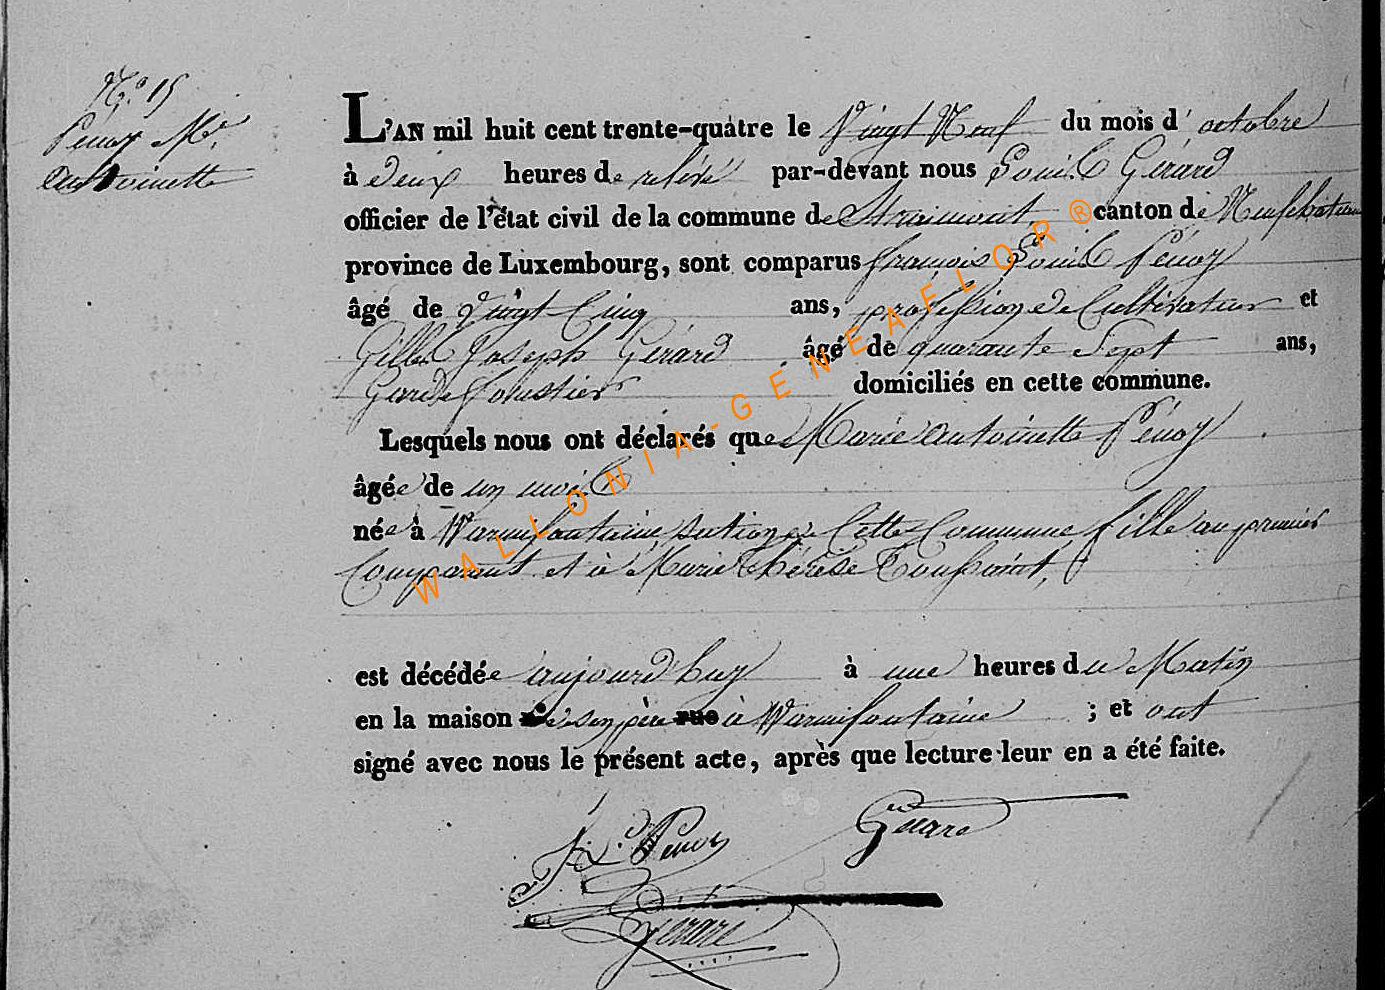 N.° 15
Pénoy M.ie
antoinette
L'AN mil huit cent trente-quatre le Vingt Neuf du mois d' octobre
à deux heures de relévé par-devant nous Louis Gérard
officier de l'état civil de la commune de Straimont canton de Neufchateau
province de Luxembourg, sont comparus françois Louis Pénoy
âgé de vingt Cinq ans, profession de Cultivateur et
Gilles Joseph Gérard âgé de quarante Sept ans,
Garde forestier domiciliés en cette commune.
Lesquels nous ont déclarés que Marie antoinette Pénoy
âgée de un mois
née à Warmifontaine section de Cette Commune fille au premier
Comparant et à Marie Thérèse Toussaint,
est décédée aujourd'huy à une heures du Matin
en la maison de son père rue à Warmifontaine ; et ont
signé avec nous le présent acte, après que lecture leur en a été faite.
Gérard
Penoy
Gérard
WALLONIA-GENEAFLOR®